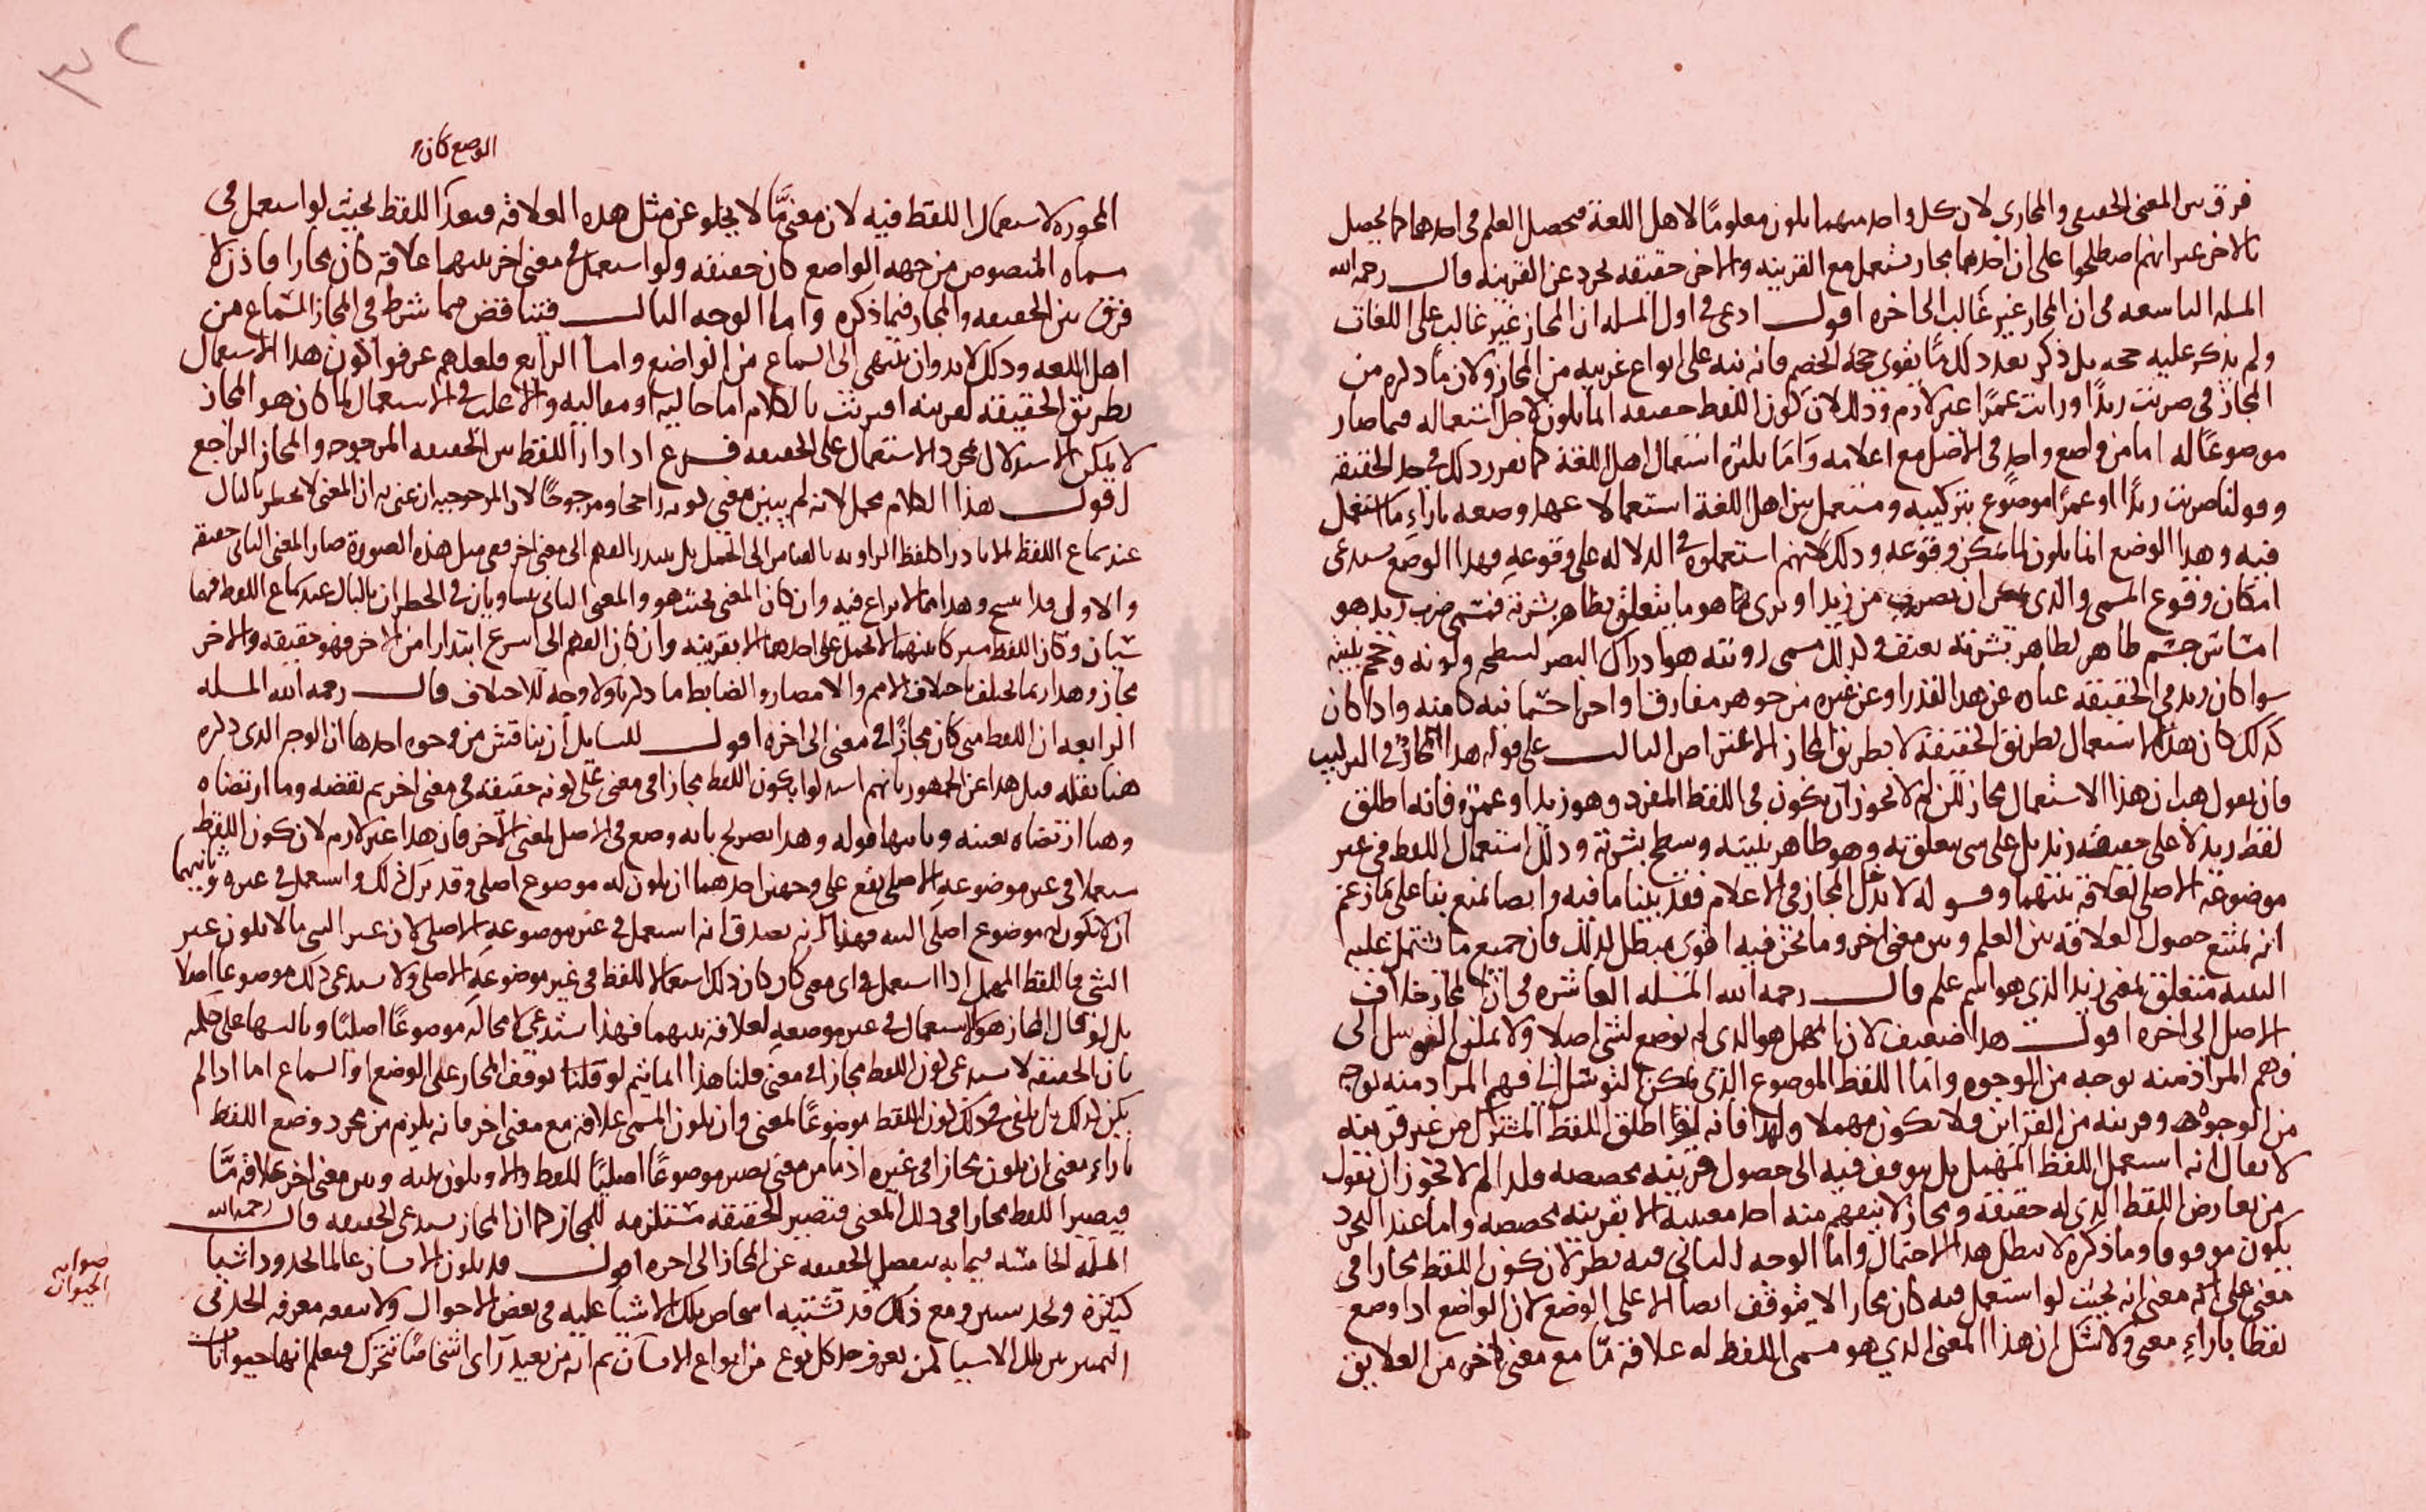 فرق بين المعنى الحقيقي والمجازي لان كل واحد منهما يكون معلومًا لاهل اللغة فيحصل العلم في احدهما كما يحصل
بالاخر غير انهم اصطلحوا على ان احدهما مجاز يستعمل مع القرينه والاخر حقيقه تجرد عن القرينه قال رحمه الله
المسله التاسعه في ان المجاز غير غالب الى اخره اقول ادعى في اول المسله ان المجاز غير غالب على اللغات
ولم يذكر عليه حجه بل ذكر بعد ذلك ما يقوى حجه الخصم فانه نبه على انواع غريبه من المجاز ولان ما ذكره من
المجاز في ضربت زيدًا ورايت عمرًا غير لازم وذلك لان كون اللفظ حقيقه انما يكون لاجل استعماله فيما صار
موضوعًا له اما من واضع واحد في الاصل مع اعلامه واما بكثرة استعمال اهل اللغة كما تقرر ذلك في حد الحقيقه
وقولنا ضربت زيدًا او عمرًا موضوع بتركيبه ومستعمل بين اهل اللغة استعمالا عهد وضعه بازاء ما استعمل
فيه وهذا الوضع انما يكون لما يمكن وقوعه وذلك لانهم استعملوه في الدلاله على وقوعه فهذا الوضع يستدعى
امكان وقوع المسمى والذي يمكن ان يضرب من زيد او يرى انما هو ما يتعلق بظاهر بشرته فتسمى ضرب زيد هو
امساس جسم ظاهر لظاهر بشرته بعنف وكذلك مسمى رويته هو ادراك البصر لسطحه ولونه وحجم بنيته
سوا كان زيد في الحقيقه عباره عن هذا القدر او عن غيره من جوهر مفارق او اجزا جسمانيه كامنه واذا كان
كذلك كان هذا الاستعمال بطريق الحقيقه لا بطريق المجاز الاعتراض الثالث على قوله هذا المجاز في التركيب
فان يقول هب ان هذا الاستعمال مجاز لكن لم لا يجوز ان يكون في اللفظ المفرد وهو زيد او عمرو فانه اطلق
لفظ زيد لا على حقيقه زيد بل على شي يتعلق به وهو ظاهر بنيته وسطح بشرته وذلك استعمال اللفظ في غير
موضوعه الاصلي لعلاقة بينهما وقوله لا يدخل المجاز في الاعلام فقد بينا ما فيه وايضا يمنع بنا على ما زعم
انه يمتنع حصول العلاقه بين العلم وبين معنى اخر وما نحن فيه اقوى مبطل لذلك فان جميع ما تشتمل عليه
البنيه متعلق بمعنى زيد الذي هو اسم علم قال رحمه الله المسله العاشره في ان المجاز خلاف
الاصل الى اخره اقول هذا ضعيف لان المهمل هو الذي لم يوضع لشي اصلا ولا يمكن التوسل الى
فهم المراد منه بوجه من الوجوه واما اللفظ الموضوع الذي يمكن التوسل الى فهم المراد منه بوجه
من الوجوه وقرينه من القراين فلا يكون مهملا ولهذا فانه لو اطلق اللفظ المشترك من غير قرينه
لا يقال انه استعمل اللفظ المهمل بل يتوقف فيه الى حصول قرينه مخصصه فلم لا يجوز ان نقول
من تعارض اللفظ الذي له حقيقه ومجاز لا يتفهم منه احد معنييه الا بقرينه مخصصه واما عند التجرد
يكون موقوفا وما ذكره لا يبطل هذا الاحتمال واما الوجه الثاني فيه نظر لان كون اللفظ مجازا في
معنى على انه معنى انه بحيث لو استعمل فيه كان مجازا لا يتوقف ايضا الا على الوضع لان الواضع اذا وضع
لفظا بازاء معنى ولا شك ان هذا المعنى الذي هو مسمى اللفظ له علاقة ما مع معنى اخر من العلايق
٣٢
الوضع كان
المجوزه لاستعمال اللفظ فيه لان معنى ما لا يخلو عن مثل هذه العلاقه فبعد اللفظ بحيث لو استعمل في
مسماه المنصوص من جهه الواضع كان حقيقه ولو استعمل في معنى اخر بينهما علاقه كان مجازا فاذن لا
فرق بين الحقيقه والمجاز فيما ذكره واما الوجه الثالث فتناقض فيما شرط في المجاز السماع من
اهل اللغه وذلك لابد وان ينتهى الى السماع من الواضع واما الرابع فلعلهم عرفوا كون هذا الاستعمال
بطريق الحقيقه لقرينه اقترنت بالكلام اما حاليه او مقاليه والاغلب في الاستعمال لما كان هو المجاز
لا يمكن الاستدلال بمجرد الاستعمال على الحقيقه فرع اذا دار اللفظ بين الحقيقه المرجوحه والمجاز الراجح
اقول هذا الكلام مجمل لانه لم يبين معنى كونه راجحا ومرجوحًا لان المرجوحيه ان عنى به ان المعنى لا يخطر بالبال
عند سماع اللفظ الا نادرا كلفظ الراويه بالقياس الى الجمل بل يتبدر الفهم الى معنى اخر ففي مثل هذه الصورة صار المعنى الثاني حقيقه
والاولى قد انسخ وهذا مما لا نزاع فيه وان كان المعنى بحيث هو والمعنى الثاني يتساويان في الخطران بالبال عند سماع اللفظ فهما
سيان وكان اللفظ مشتركا بينهما لا يحمل على احدهما الا بقرينه وان كان الفهم الى اسرع ابتدارا من الاخر فهو حقيقه والاخر
مجاز وهذا ربما يختلف باختلاف الامم والامصار والضابط ما ذكرنا ولا وجه للاختلاف قال رحمه الله المسله
الرابعه ان اللفظ متى كان مجازًا في معنى الى اخره اقول للسايل ان يناقش من وجوه احدها ان الوجه الذي ذكره
هنا نقله قبل هذا عن الجمهور بانهم استدلوا بكون اللفظ مجازا في معنى على كونه حقيقه في معنى اخر ثم نقضه وما ارتضاه
وهنا ارتضاه بعينه وثانيها قوله وهذا تصريح بانه وضع في الاصل لمعنى اخر فان هذا غير لازم لان كون اللفظ
مستعملا في غير موضوعه الاصلي يقع على وجهين احدهما ان يكون له موضوع اصلي وقد ترك ذلك واستعمل في غيره وثانيهما
ان لا يكون له موضوع اصلي البته فهذا كانه يصدق انه استعمل في غير موضوعه الاصلي لان غير الشي ما لا يكون عين
الشي فاللفظ المهمل اذا استعمل في اي معنى كان كان ذلك استعمالا للفظ في غير موضوعه الاصلي ولا يستدعى ذلك موضوعا اصلا
بل لو قال المجاز هو الاستعمال في غير موضعه لعلاقة بينهما فهذا يستدعى لا محاله موضوعًا اصليًا وثالثها على حكمه
بان الحقيقه لا تستدعى كون اللفظ مجازا في معنى قلنا هذا انما يتم لو قلنا توقف المجاز على الوضع او السماع اما اذا لم
يكن كذلك بل يكفي في ذلك كون اللفظ موضوعًا لمعنى وان يكون للمسمى علاقه مع معنى اخر فانه يلزم من مجرد وضع اللفظ
بازاء معنى ان يكون مجازا في غيره اذ ما من معنى يصير موضوعًا اصليًا للفظ والا ويكون بينه وبين معنى اخر علاقه ما
فيصير اللفظ مجازا في ذلك المعنى فتصير الحقيقه مستلزمه للمجاز كما ان المجاز يستدعى الحقيقه قال رحمه الله
المسله الخامسه فيما به تنفصل الحقيقه عن المجاز الى اخره اقول قد يكون الانسان عالما لحدود اشيا
كثيرة ولحد ومع ذلك قد تشتبه اشخاص تلك الاشيا عليه في بعض الاحوال ولا ينفعه معرفه الحد في
التمييز بين تلك الاشيا لمن يعرف حد كل نوع من انواع الانسان ثم انه من بعيد راى اشخاصًا تتحرك فيعلم انها حيوانات
صوابه
الحيوان